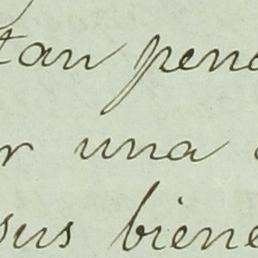 tan pend
r una
sus biene